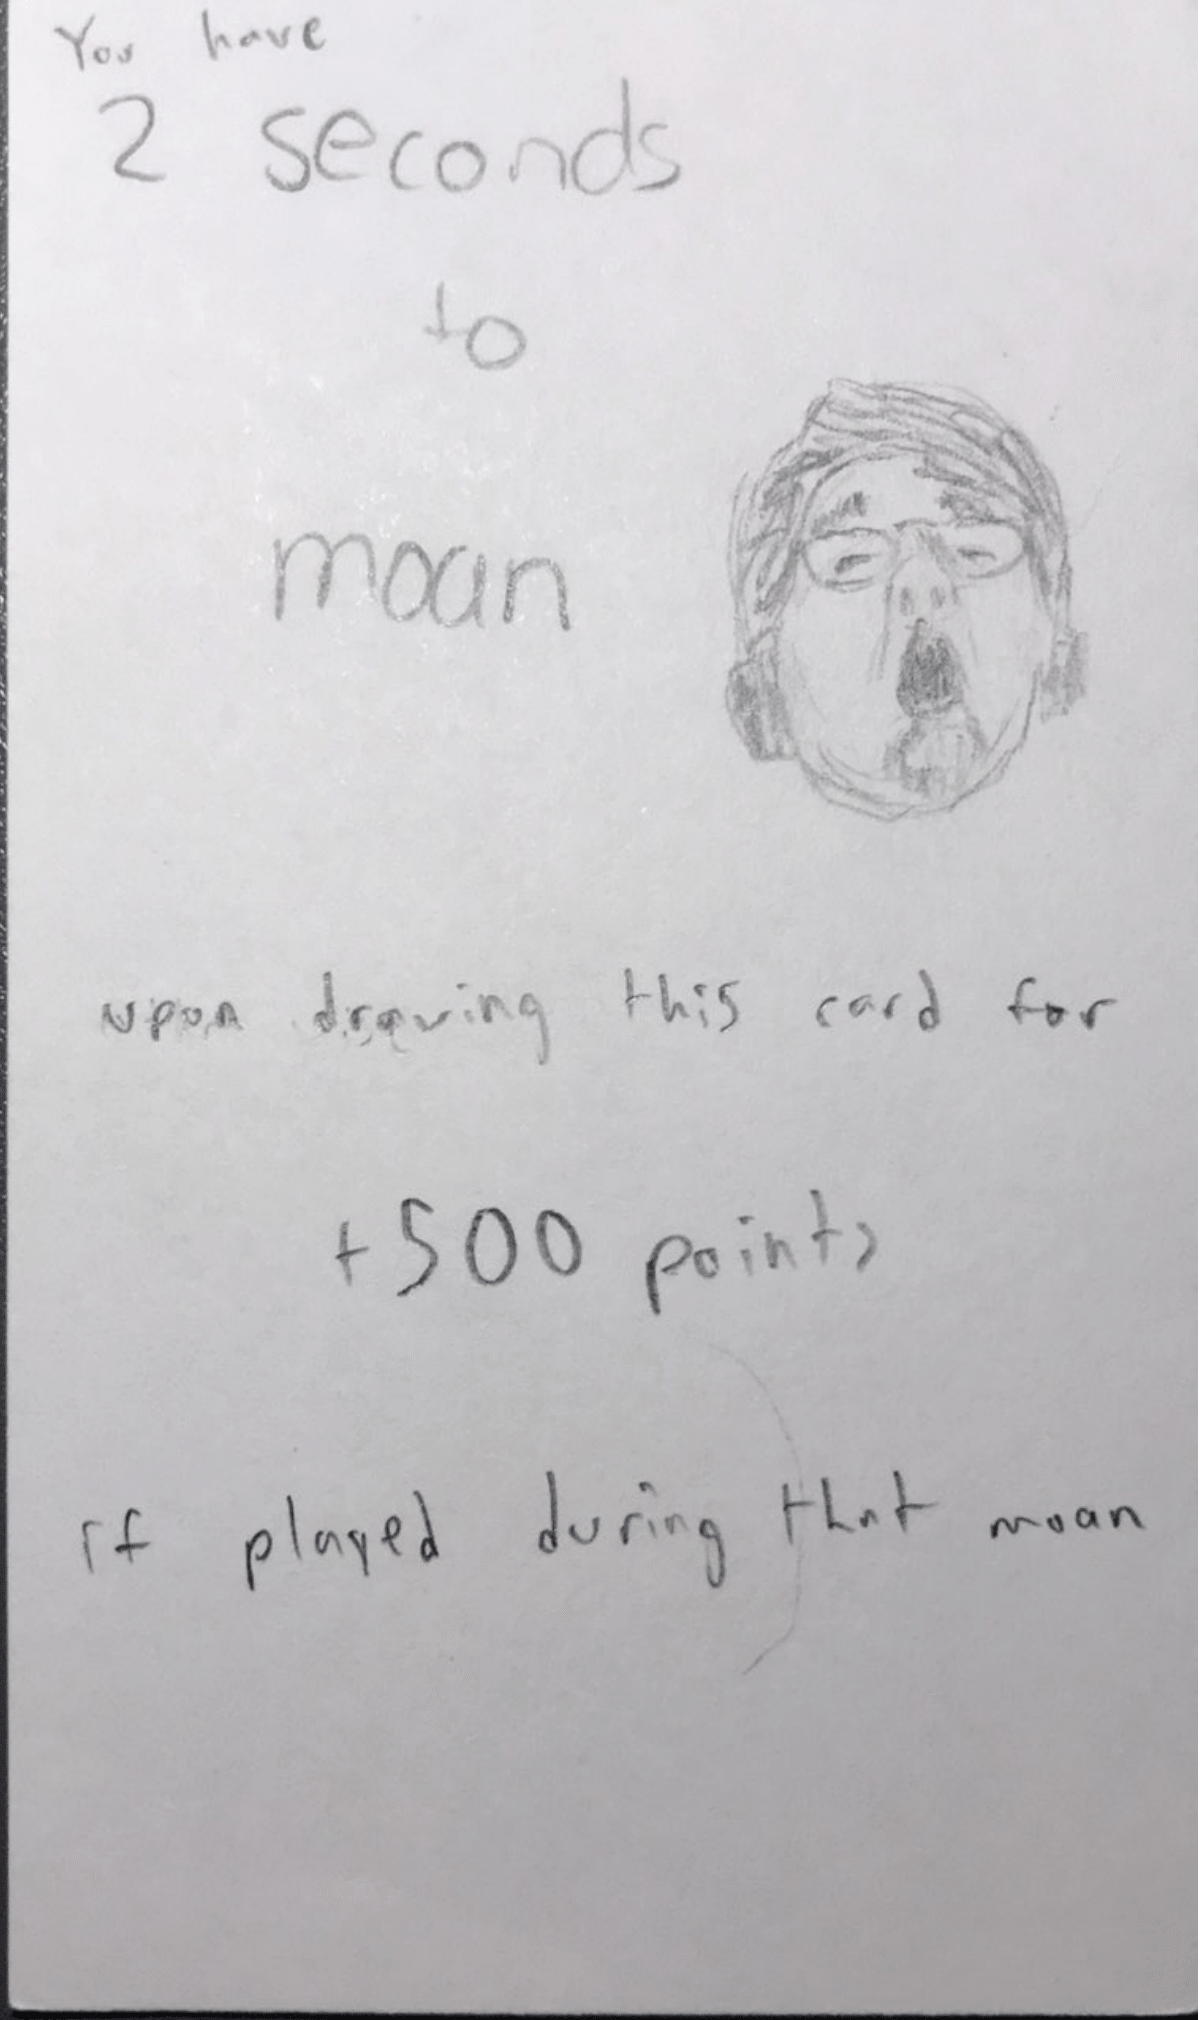 You have
2 seconds
to
moan
upon drawing this card for
+500 points
if played during that moan